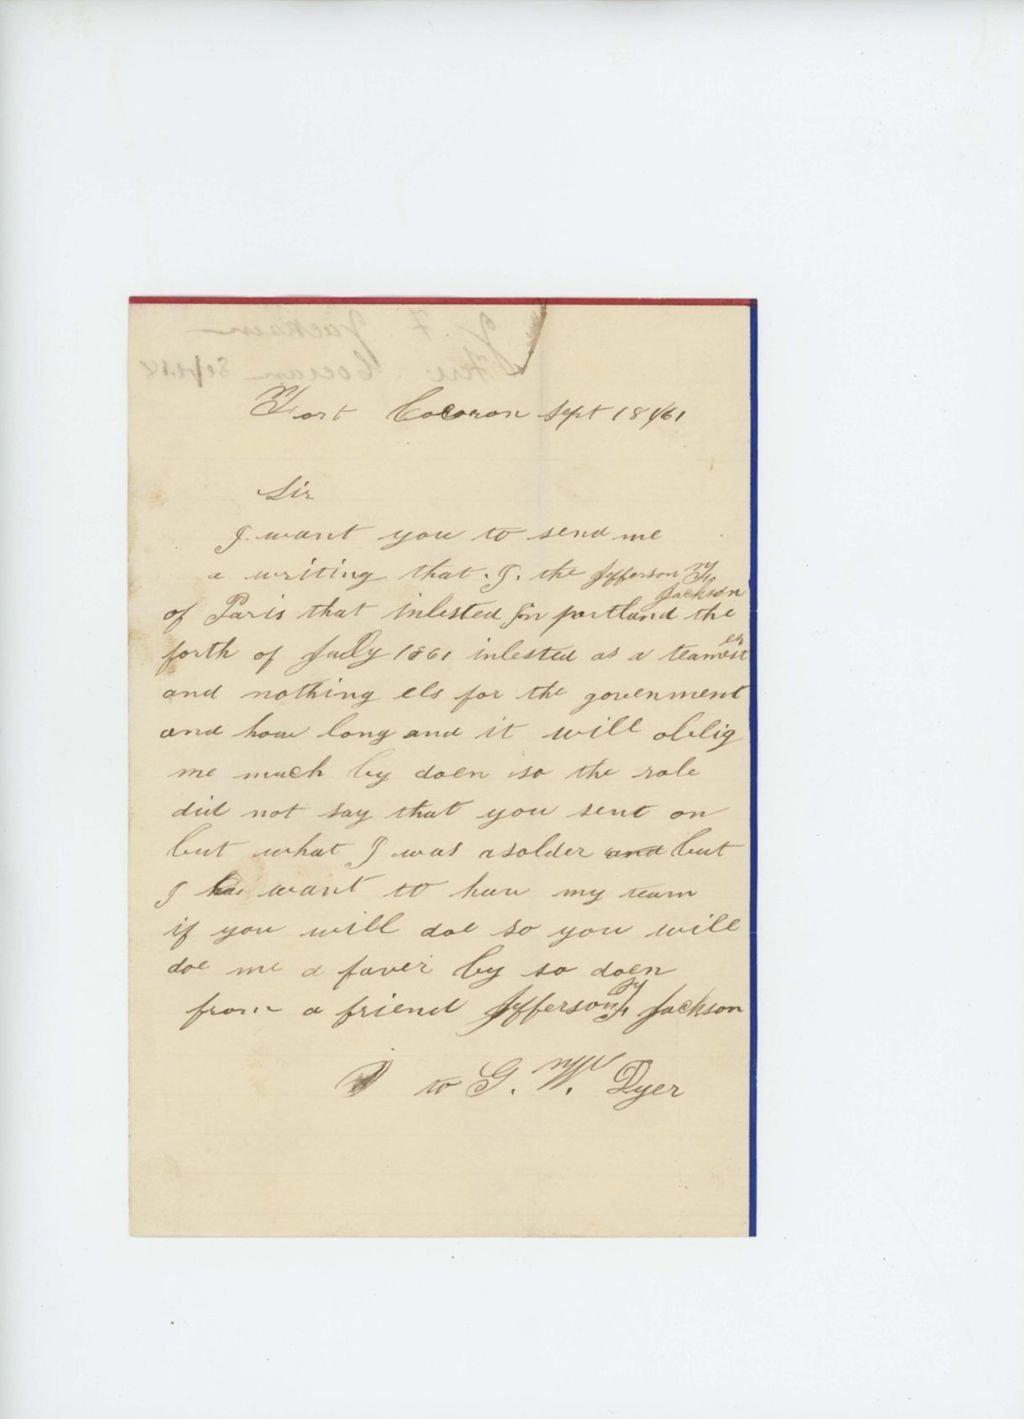 Fort Cocoron Sept 18 1861
Sir
I want you to send me
a writing that I the Jefferson F
Jackson
of Paris that inlested in portland the
forth of July 1861 inlested as a teamester
and nothing els for the govenment
and how long and it will oblig
me much by doen so the role
did not say that you sent on
but what I was a solder and but
I want to have my team
if you will doe so you will
doe me a faver by so doen
from a friend Jefferson F Jackson
to G. W. Dyer